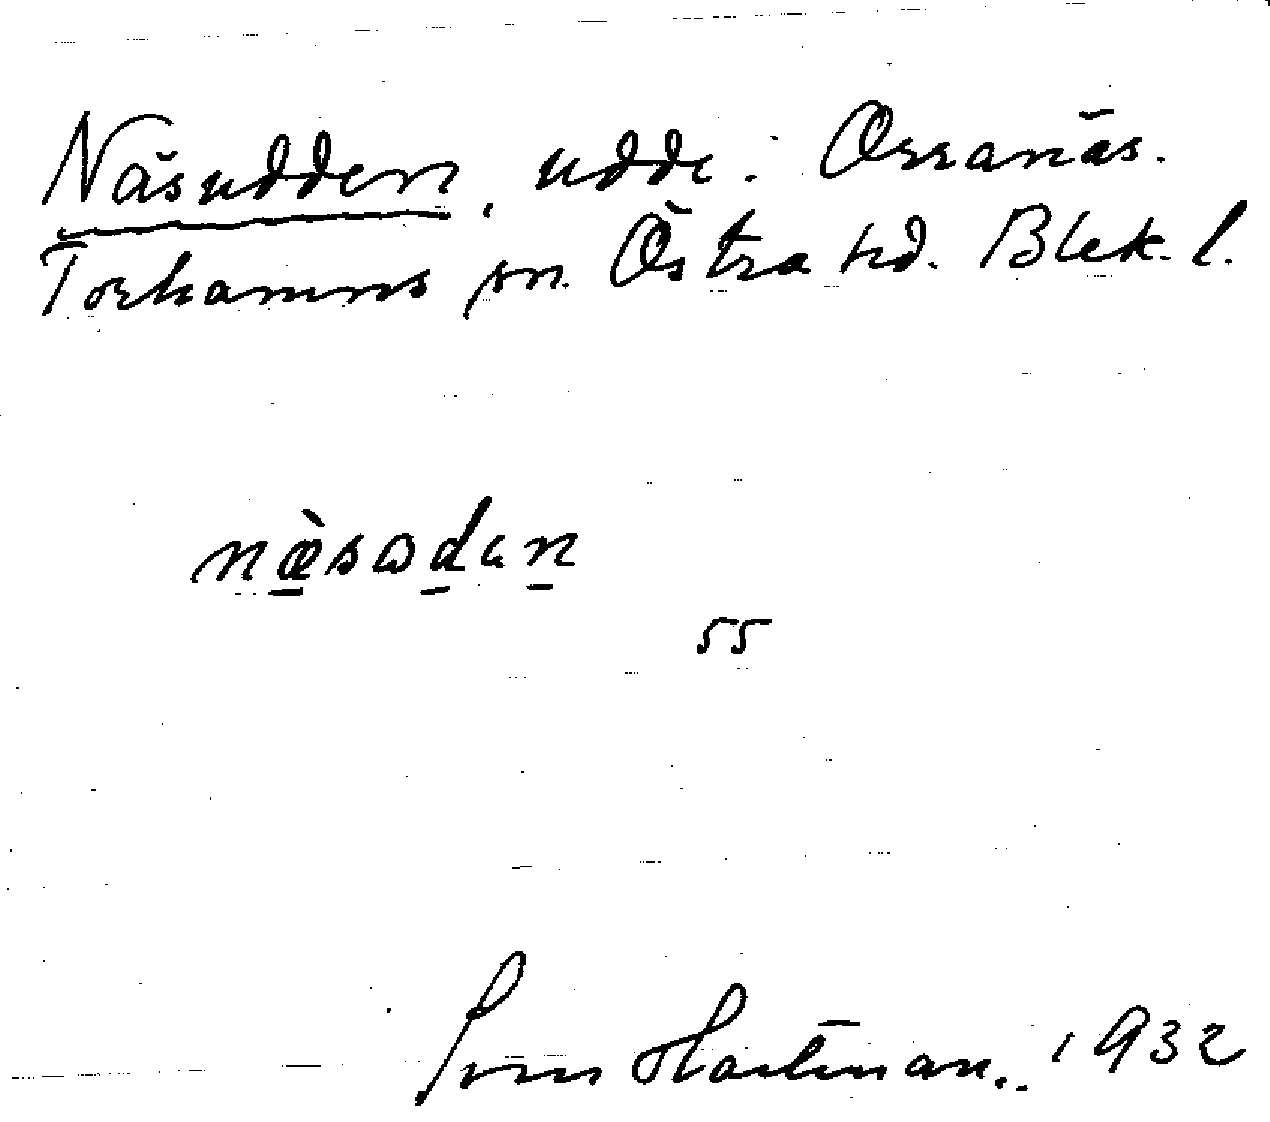 Näsudden, udde: Orranäs.
Torhamns sn. Östra hd. Blek. l.
næ̀sɷdɛn
55
Sven Hartman. 1932